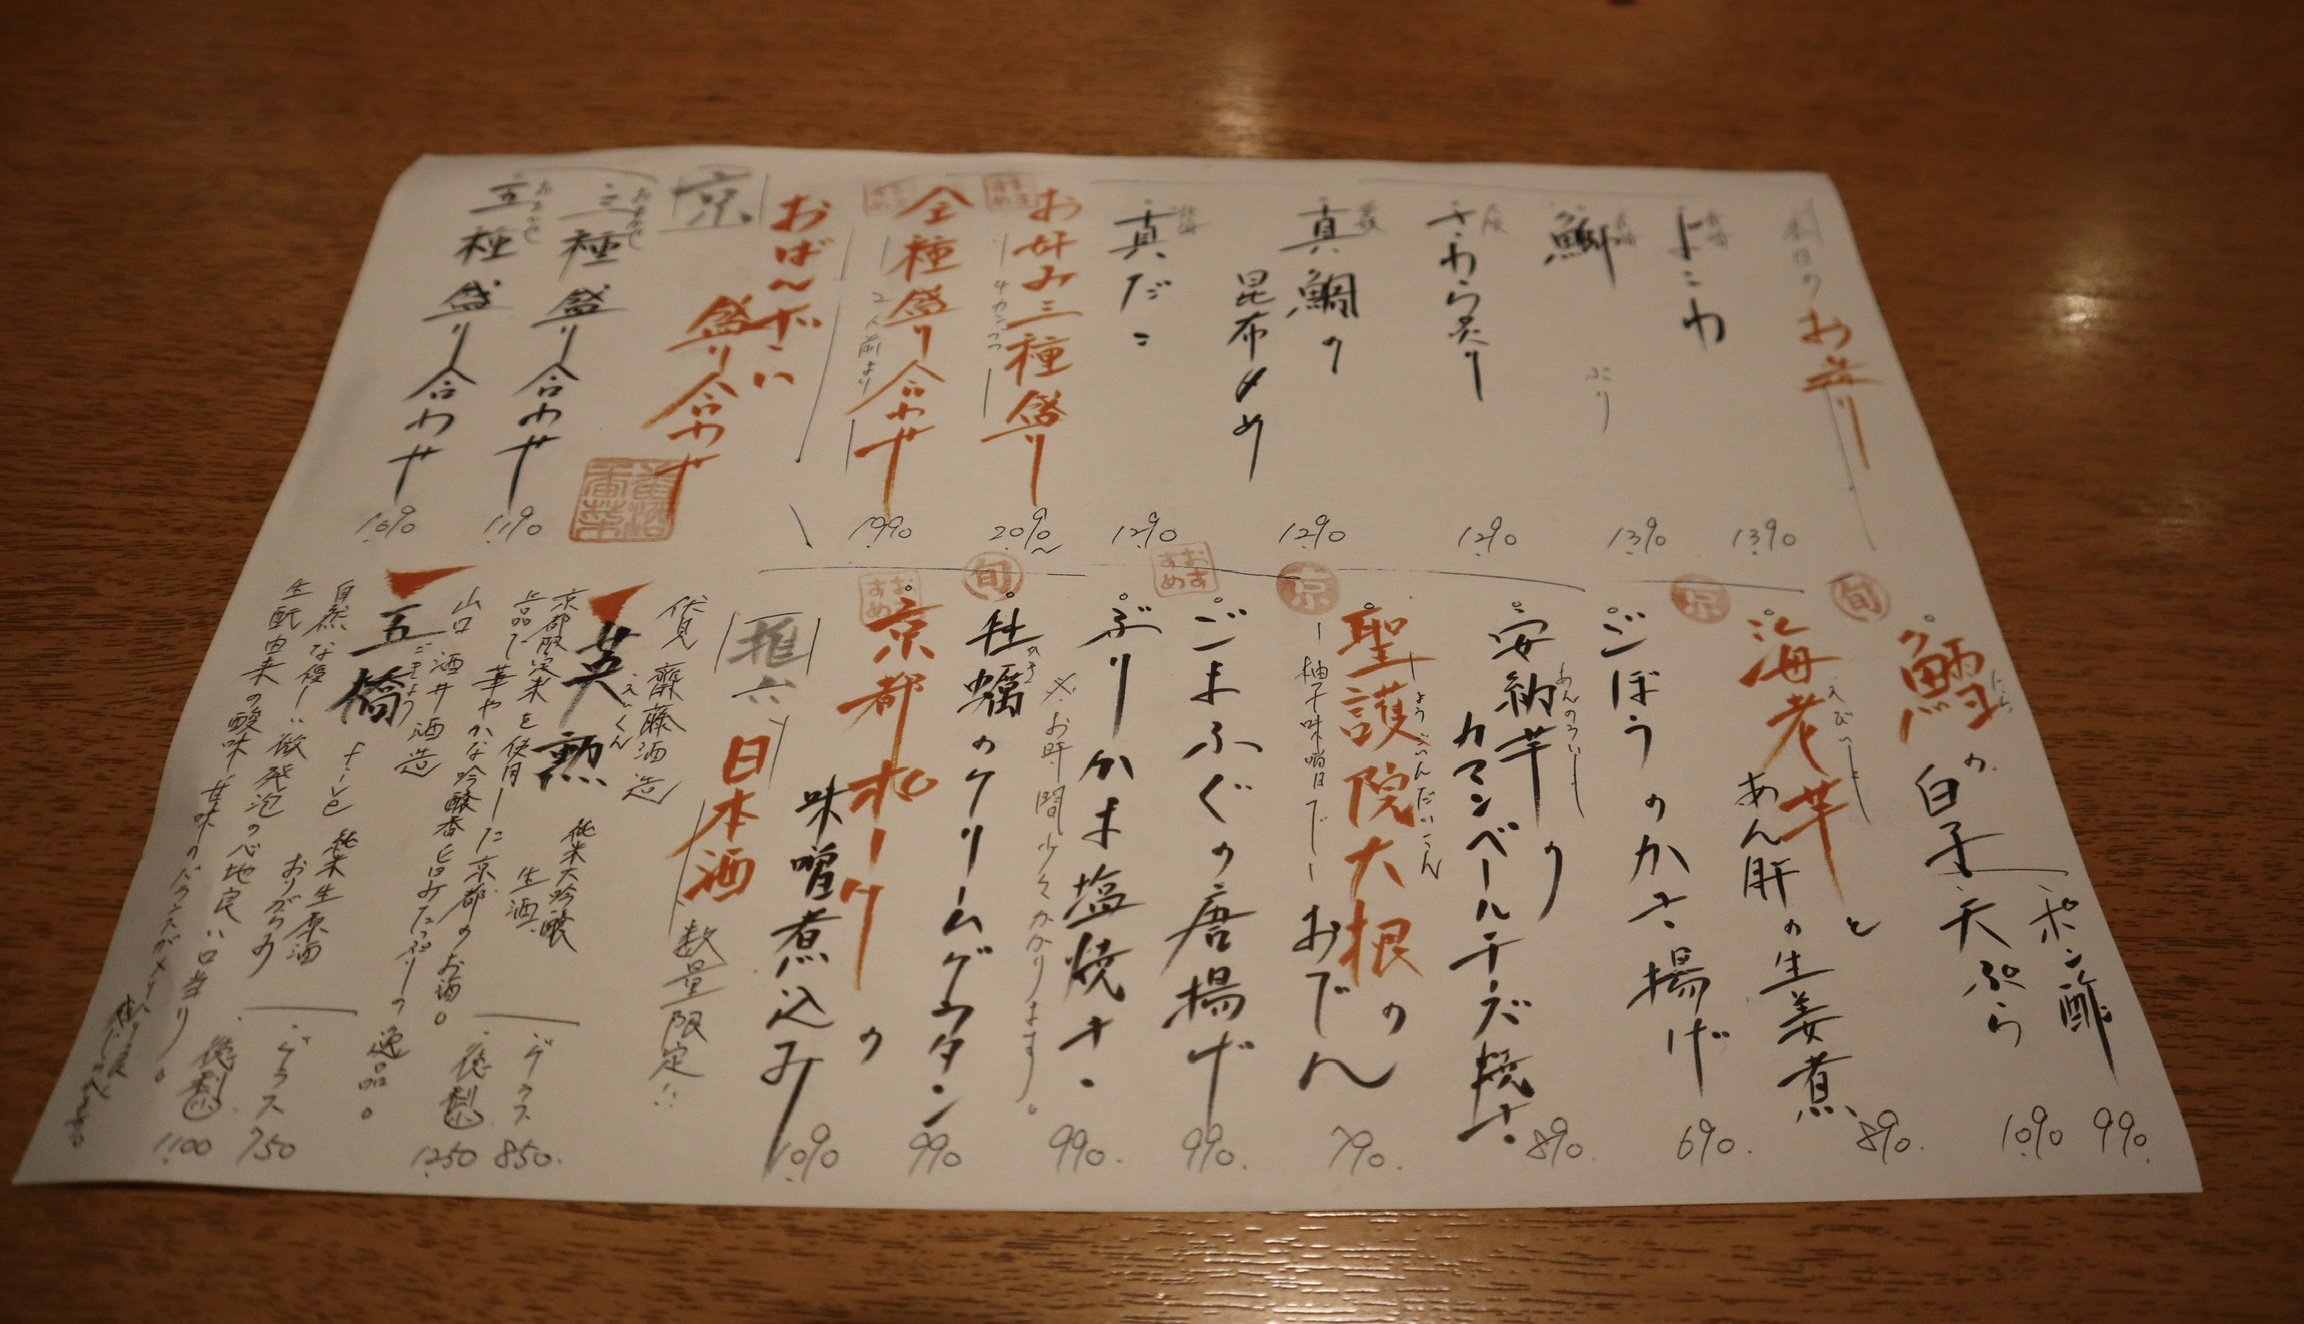 本日のお造り
長崎
よこわ
1390
長崎
鰤
ぶり
1390
大阪
さわら炙り
1290
真鯛の
昆布〆め
1290
真だこ
1290
おすすめ
お好み三種盛り
4カンづつ
2090
おすすめ
全種盛り合わせ
2人前より
1990
京
おばんざい
盛り合わせ
おまかせ
三種盛り合わせ
1190
おまかせ
五種盛り合わせ
1690
旬
鱈の
たら
白子
ポン酢
990
天ぷら
1090
京
海老芋と
えびいも
あん肝の生姜煮
890
ごぼうのかき揚げ
690
安納芋の
あんのういも
カマンベールチーズ焼き
890
京
聖護院大根の
しょうごいんだいこん
おでん
柚子味噌で
790
おすすめ
ごまふぐの唐揚げ
990
ぶりかま塩焼き
※お時間少々かかります。
990
旬
牡蠣のクリームグラタン
かき
990
おすすめ
京都ポークの
味噌煮込み
1090
推し
日本酒
数量限定!!
伏見 齋藤酒造
英勲
えいくん
純米大吟醸
生酒
京都酒米を使用した京都のお酒。
上品で華やかな吟醸香と旨みたっぷりの逸品。
グラス
850
徳利
1250
山口 酒井酒造
五橋
ごきょう
純米生原酒
おりがらみ
自然な優しい微発泡の心地良い口当り。
生酛由来の酸味と甘味のバランスが
グラス
750
徳利
1100